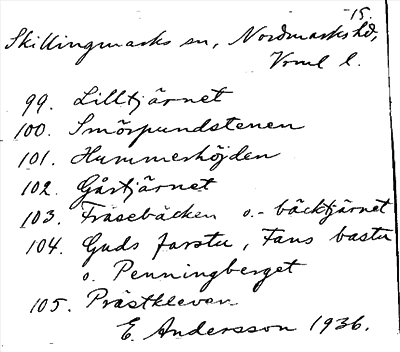 15.
Skillingmarks sn, Nordmarks hd,
Vrml l.
99. Lilltjärnet
100. Smörpundstenen
101. Hummerhöjden
102. Gåstjärnet
103. Fräsebäcken o. - bäcktjärnet
104. Guds farstu, Fans bastu
o. Penningberget
105. Prästklevan
E. Andersson 1936.